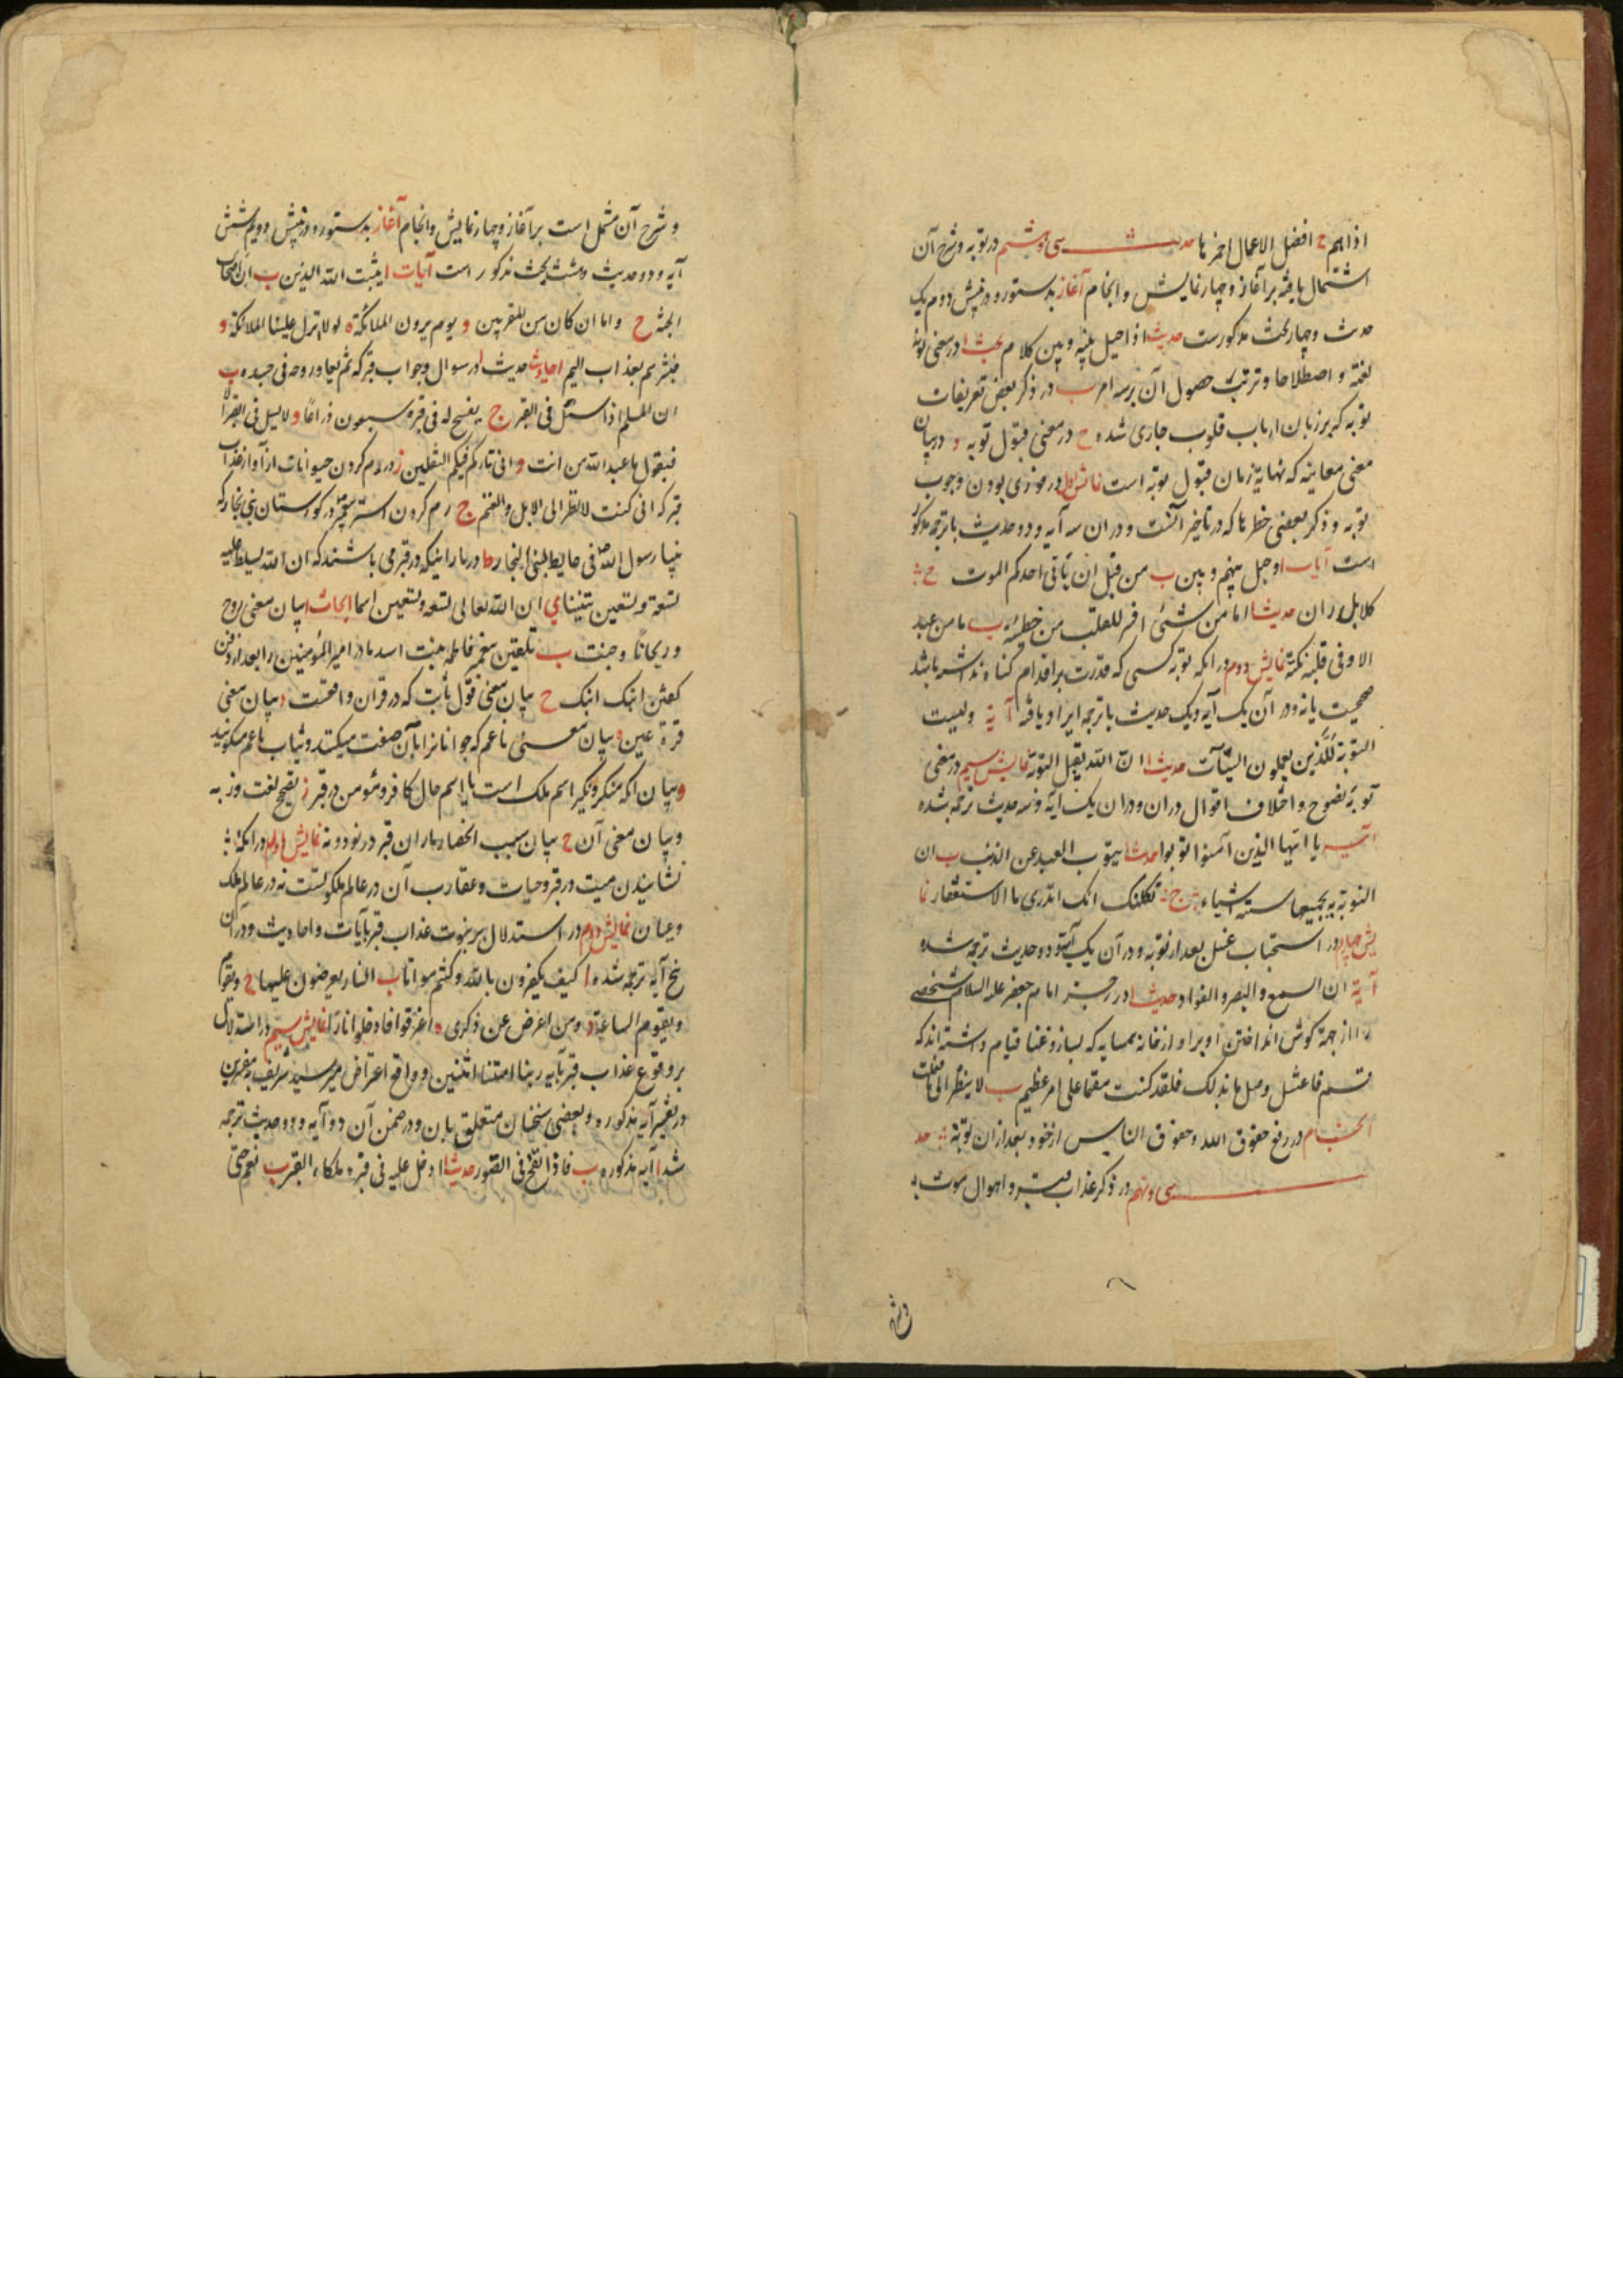 اذا اهم ح افضل الاعمال احمزها حدیث سی و هشتم در توبه و شرح آن
اشتمال یافته بر آغاز و چهار نمایش و انجام آغاز بدستور و در پیش دوم یک
حدیث و چهار بحث مذکورست حدیث اذا حیل بینه و بین کلام بحث ا در معنی توبه
لغة و اصطلاحا و ترتب حصول آن بر سه امر ب در ذکر بعض تعریفات
توبه که بر زبان ارباب قلوب جاری شده ح در معنی قبول توبه و در بیان
معنی معاینه که نهایة زمان قبول توبه است نمایش اول در فوری بودن وجوب
توبه و ذکر بعضی خطرها که در تاخیر آنست و در ان سه آیه و دو حدیث با ترجمه مذکور
است آیات ا و حیل بینهم و بین ب من قبل ان یأتی احدکم الموت ح
کلا بل ران حدیث ا ما من شئ افسد للقلب من خطیئة ب ما من عبد
الا و فی قلبه نکتة نمایش دوم در انکه توبه کسی که قدرت بر اقدام گناه نداشته باشد
صحیحست یا نه و در آن یک آیه و یک حدیث با ترجمه ایراد یافته آیة و لیست
التوبة للذین یعملون السیئات حدیث ا ان الله یقبل التوبة نمایش سیم در معنی
توبهٔ نصوح و اختلاف اقوال در ان و در ان یک آیه و سه حدیث ترجمه شده
آیة یا ایها الذین آمنوا توبوا حدیث ا یتوب العبد عن الذنب ب ان
التوبة یجمعها ستة اشیاء ج ثکلتک امک اتدری ما الاستغفار نما
یش چهارم در استحباب غسل بعد از توبه و در آن یک آیه و دو حدیث ترجمه شده
آیة ان السمع و البصر و الفؤاد حدیث ا در زجر امام جعفر علیه السلام شخصی
را از جهة گوش انداختن او بر آواز خانه همسایه که بساز و غنا قیام داشته‌اند که
قم فاغتسل وصل ما بدا لک فلقد کنت مقیما علی امر عظیم ب لا ینظر الی
انجام در رفع حقوق الله و حقوق الناس از خود بعد از ان توبه حد
سی و نهم در ذکر عذاب قبر و اهوال موت
و شرح
و شرح آن مشتمل است بر آغاز و چهار نمایش و انجام آغاز بدستور و در پیش دویم شش
آیه و دو حدیث و هشت بحث مذکور است آیات ا یثبت الله الذین ب ان اصحاب
الجنة ح و اما ان کان من المقربین و یوم یرون الملائکة ه لولا نزل علینا الملائکة و
فبشرهم بعذاب الیم احادیث حدیث ا در سوال و جواب قبر که ثم یعاد روحه فی جسده ب
ان المسلم اذا سئل فی القبر ج یفسح له فی قبره سبعون ذراعًا و
فیقول یا عبد الله من انت و انی تارک فیکم الثقلین ز در رم کردن حیوانات از آواز عذاب
قبر که انی کنت لانظر الی الابل و الغنم ح رم کردن استر پیغمبر در گورستان بنی نجار که
بینا رسول الله فی حایط لبنی النجار ط در مارانیکه در قبر می باشند که ان الله یسلط علیه
تسعة و تسعین تنینا ی ان الله تعالی تسعة و تسعین اسما ابحاث ا بیان معنی روح
و ریحانا و جنت ب تلقین پیغمبر فاطمه بنت اسد مادر امیر المؤمنین را بعد از دفن
کفتن ابنک ابنک ح بیان معنی قول ثابت که در قران واقعست د بیان معنی
قرة عین ه بیان معنی ناعم که جوانانرا بآن صفت میکنند و ثیاب ناعم میگویند
و بیان انکه منکر و نکیر اسم ملک است یا اسم حال کافر و مؤمن در قبر ز
و بیان معنی آن ح بیان سبب انحصار ماران قبر در نود و نه نمایش اول در انکه
نشانیدن میت در قبر و حیات و عقارب آن در عالم ملکوتست نه در عالم ملک
و عیان نمایش دوم در استدلال بر ثبوت عذاب قبر بآیات و احادیث و در آن
پنج آیه ترجمه شده ا کیف تکفرون بالله و کنتم امواتا ب النار یعرضون علیها ح و یوم
و یقوم الساعة د و من اعرض عن ذکری ه اغرقوا فادخلوا نارًا نمایش سیم در استدلال
بر وقوع عذاب قبر بآیه ربنا امتنا اثنتین و دفع اعتراض میر سید شریف بمفسرین
در تفسیر آیه مذکوره و بعضی سخنان متعلق بان و در ضمن آن دو آیه و دو حدیث ترجمه
شد ا آیه مذکوره ب فاذا نفخ فی الصور حدیث ا ادخل علیه فی قبره ملکاء القبر ب